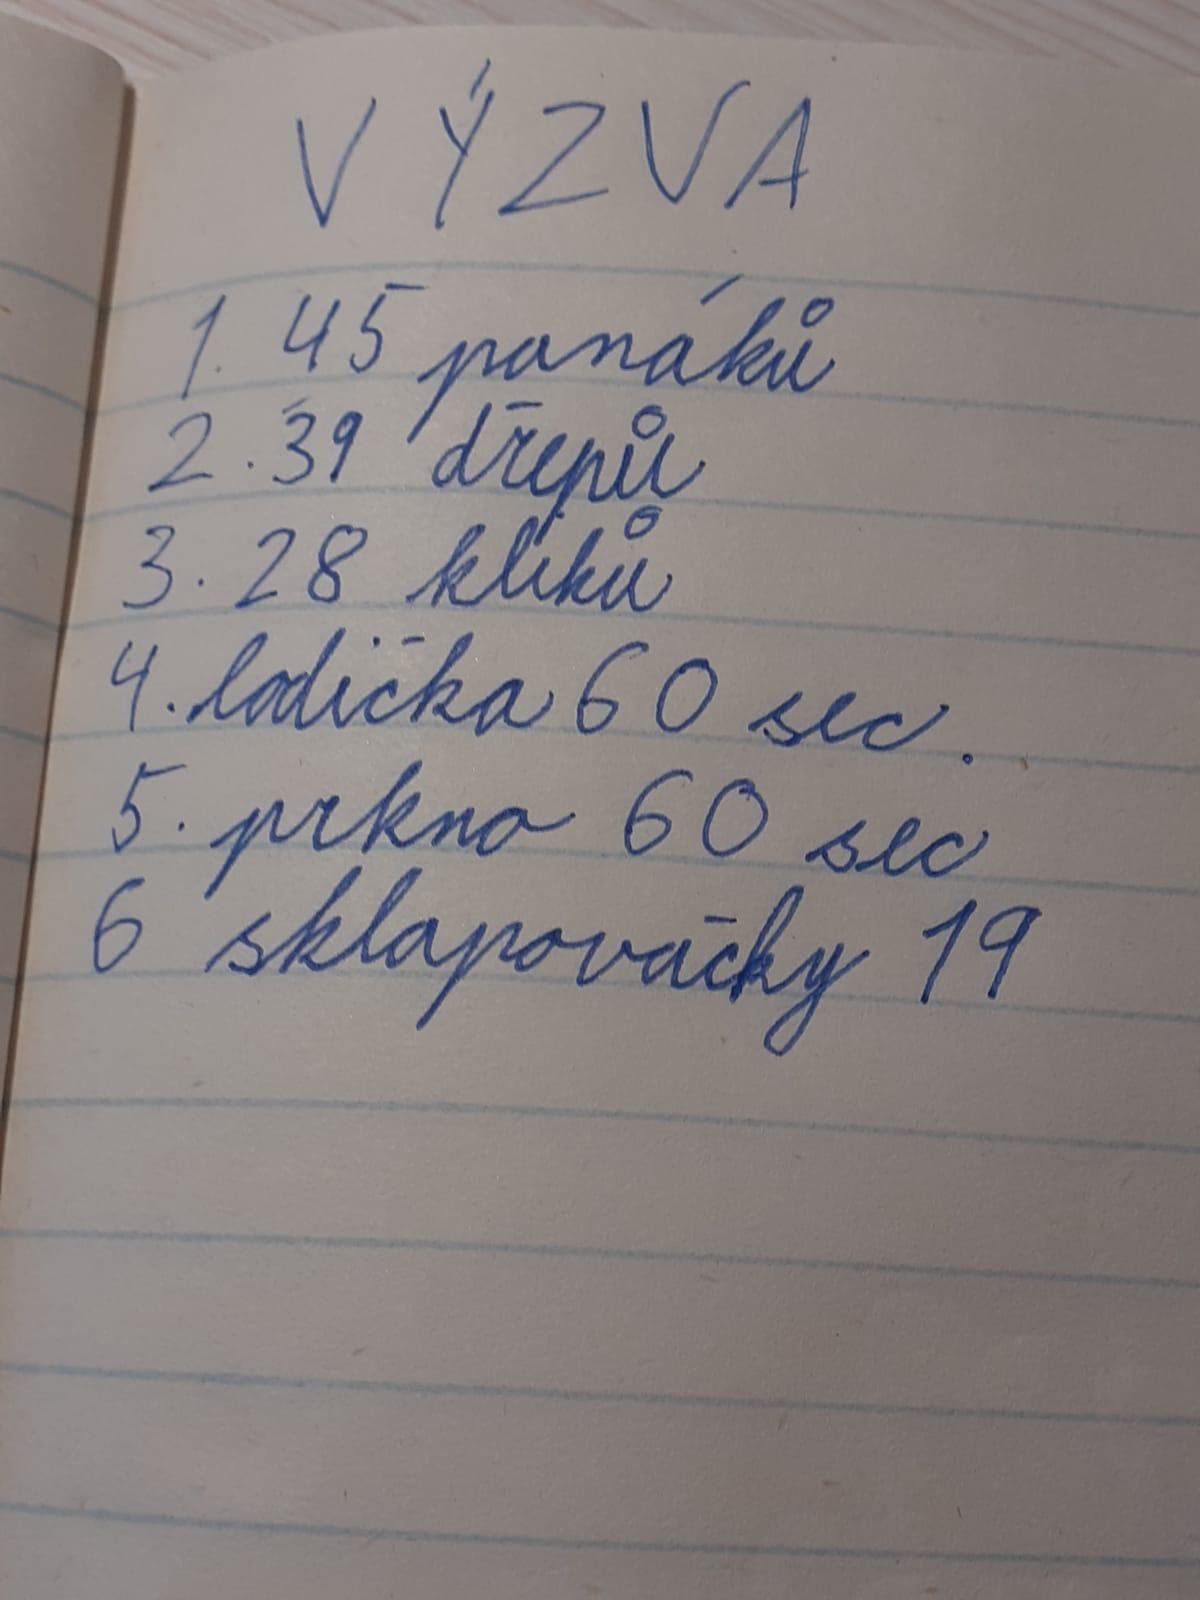 VÝZVA
1. 45 panáků
2. 39 dřepů
3. 28 kliků
4. lodička 60 sec.
5. prkno 60 sec
6 sklapovačky 19